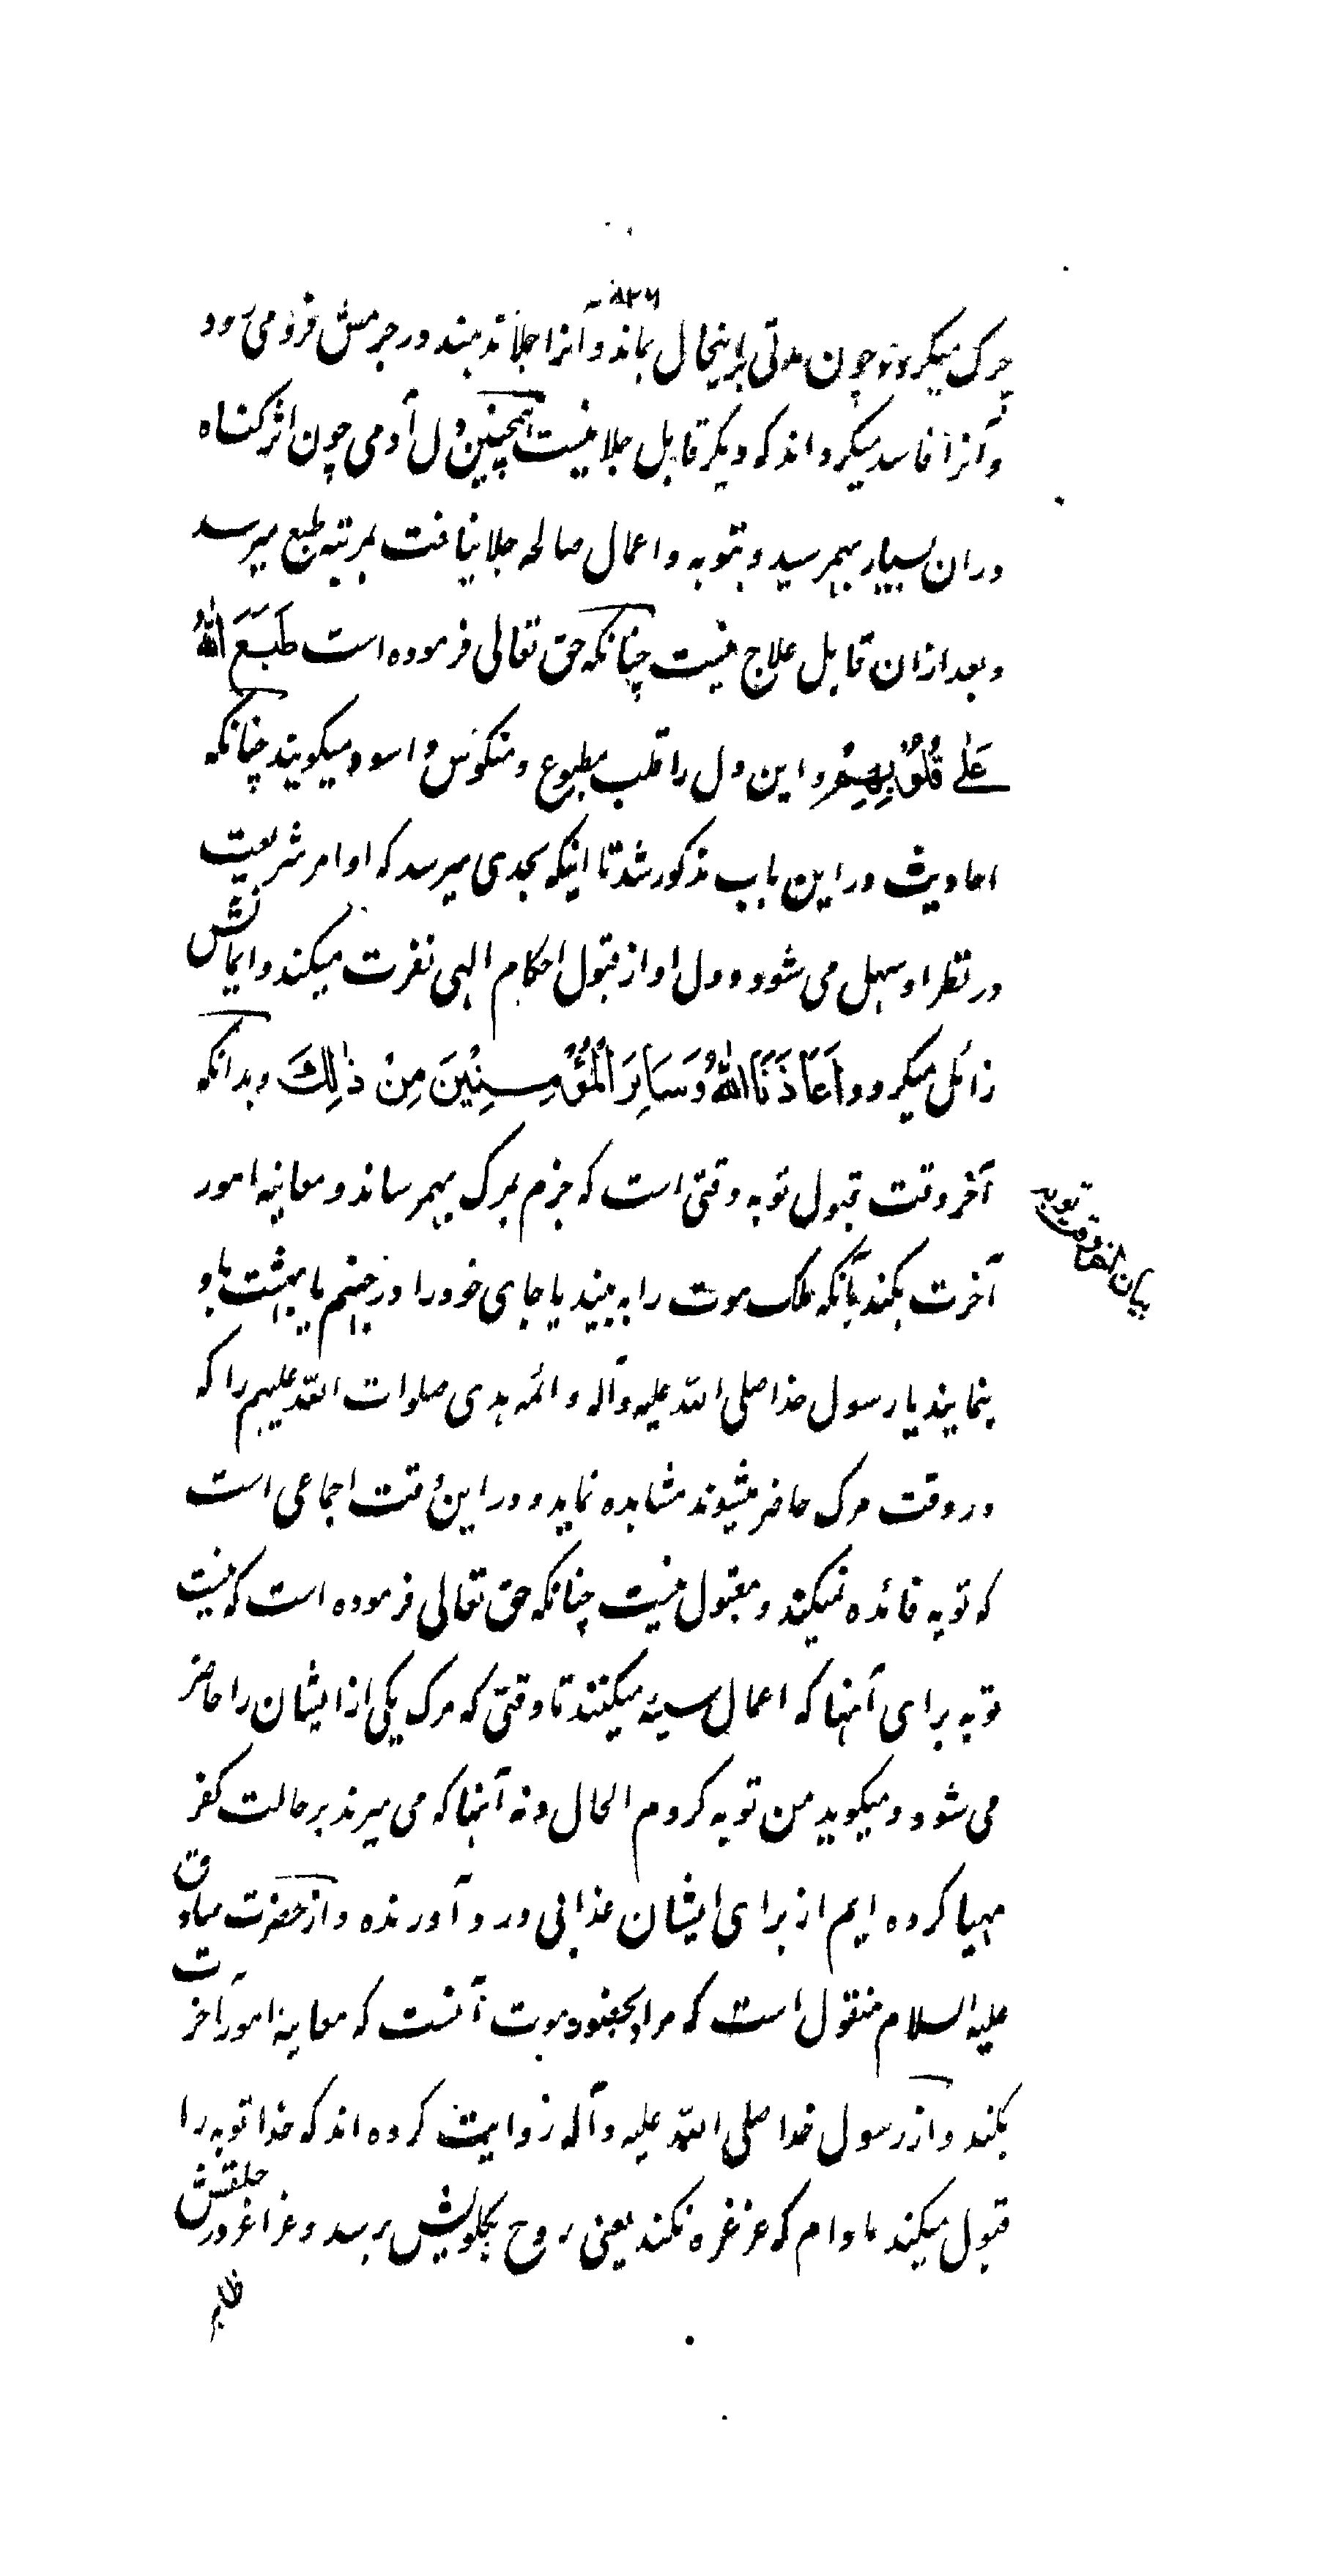 ۸۲۶
چرک میگردد چون مدتی براینحال بماند و آنرا جلا ندهند در جرمش فرو می رود
و آنرا فاسد میگرداند که دیگر قابل جلا نیست همچنین دل آدمی چون اثر گناه
دران بسیار بهمرسید و بتوبه و اعمال صالحه جلا نیافت بمرتبه طبع میرسد
و بعد ازان قابل علاج نیست چنانکه حق تعالی فرموده است طَبَعَ اللهُ
عَلٰی قُلُوْبِهِمْ و این دل را قلب مطبوع و منکوس و اسود میگویند چنانکه
احادیث در این باب مذکور شد تا اینکه بحدی میرسد که اوامر شریعت
در نظر او سهل می شود و دل او از قبول احکام الهی نفرت میکند و ایمانش
زائل میگردد اَعَاذَنَا اللهُ وَسَایِرَ الْمُؤْمِنِیْنَ مِنْ ذٰلِکَ و بدانکه
آخر وقت قبول توبه وقتی است که جزم بمرگ بهمرساند و معاینه امور
آخرت بکند بآنکه ملک موت را به بیند یا جای خود را در جهنم یا بهشت باو
بنمایند یا رسول خدا صلی الله علیه وآله و ائمه هدی صلوات الله علیهم را که
در وقت مرگ حاضر میشوند مشاهده نماید و در این وقت اجماعی است
که توبه فائده نمیکند و مقبول نیست چنانکه حق تعالی فرموده است که نیست
توبه برای آنها که اعمال سیئه میکنند تا وقتی که مرگ یکی از ایشان را حاضر
می شود و میگوید من توبه کردم الحال و نه آنها که می میرند بر حالت کفر
مهیا کرده ایم از برای ایشان عذابی درد آورنده و از حضرت صادق
علیه السلام منقول است که مراد بحضور موت آنست که معاینه امور آخرت
بکند و از رسول خدا صلی الله علیه وآله روایت کرده اند که خدا توبه را
قبول میکند مادام که غرغره نکند یعنی روح بگلویش برسد و غراغر در حلقش
ظاهر
بیان آخر وقت توبه